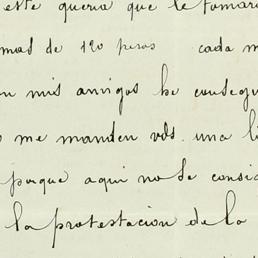 este queria que le tomara
mas de 120 pesos cada m
n mis amigos he conseg
o me manden vds. una li
porque aqui no se consi
la protestacion de la